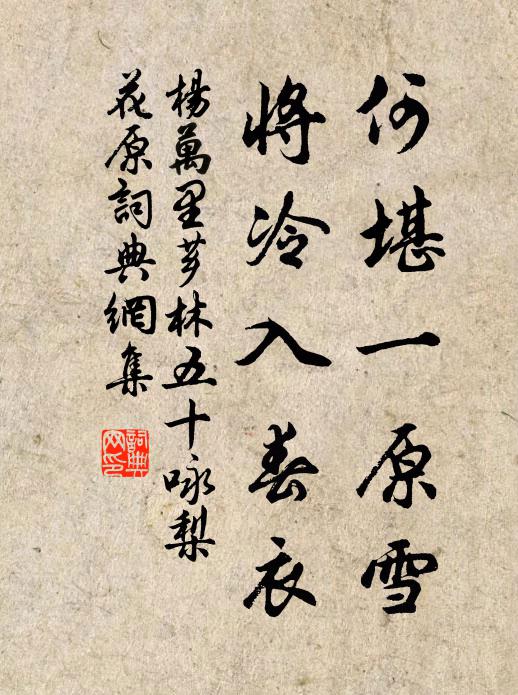 何堪一原雪
將冷入春衣
楊萬里芗林五十咏梨
花原詞典網集
詞典網印